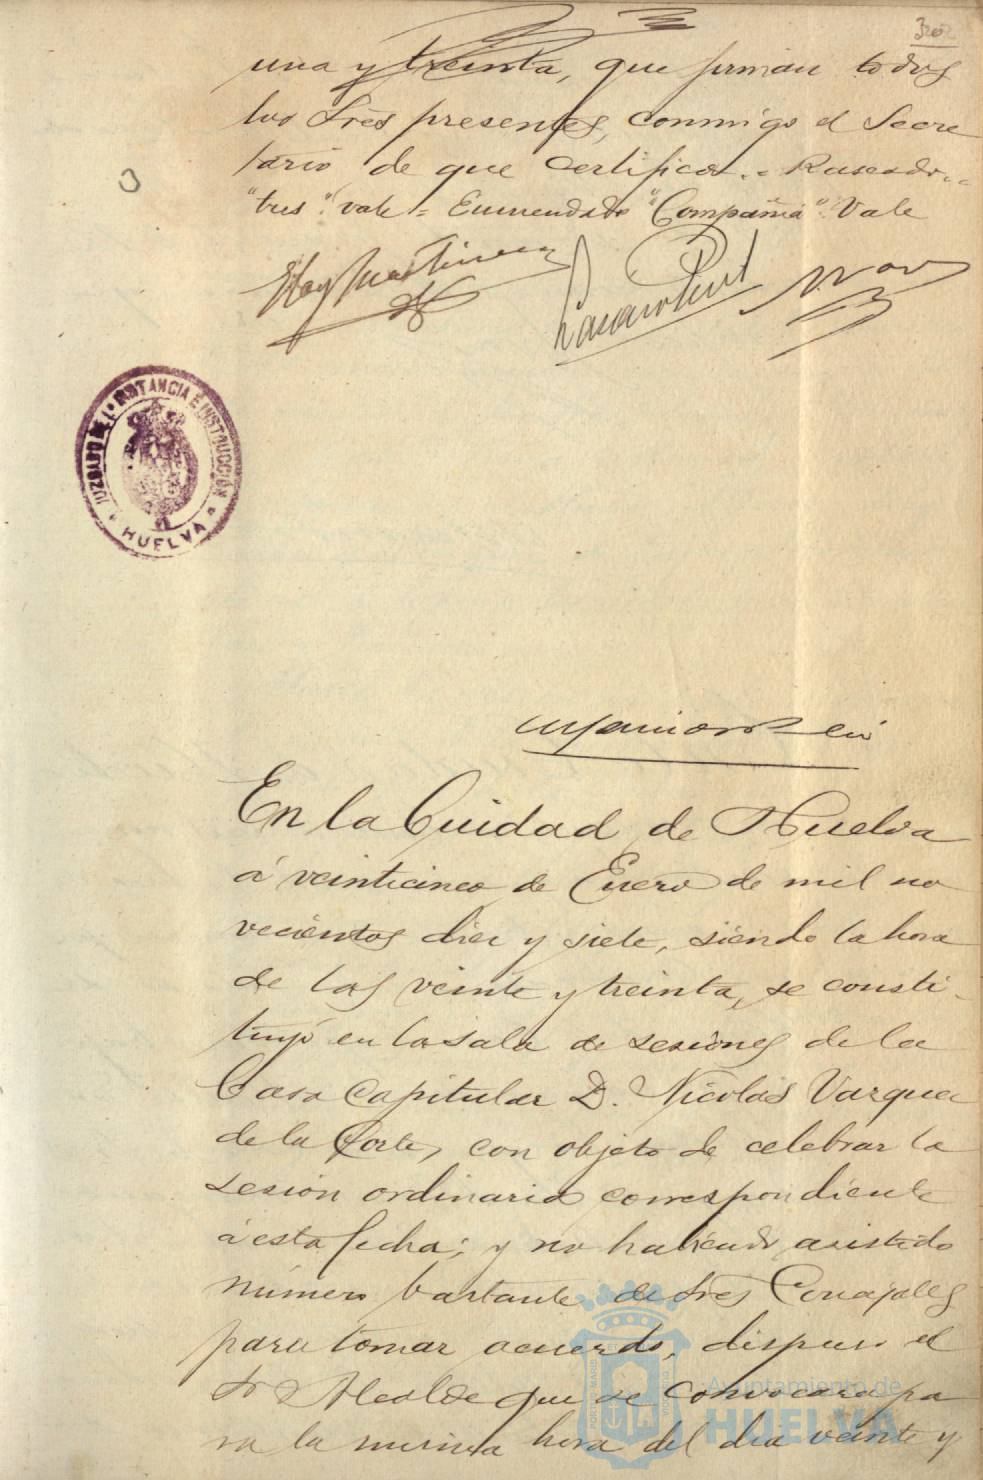 302
una y treinta, que firman todos
los Sres presentes, conmigo el Secre
tario de que certifico.. Raspado..
"tres". vale = Enmendado "Compañia". Vale
Eloy Martinez
JUZGADO DE 1ª INSTANCIA E INSTRUCCIÓN
HUELVA
En la Cuidad de Huelva
á veinticinco de Enero de mil no
vecientos diez y siete, siendo la hora
de las veinte y treinta, se consti-
tuyó en la sala de sesiones de la
Casa Capitular D. Nicolás Vazquez
de la Corte, con objeto de celebrar la
sesión ordinaria correspondiente
á esta fecha; y no habiendo asistido
número bastante de Sres Concejales
para tomar acuerdo, dispuso el
Sr Alcalde que se convocara pa
ra la misma hora del dia veinte y
Ayuntamiento de
HUELVA